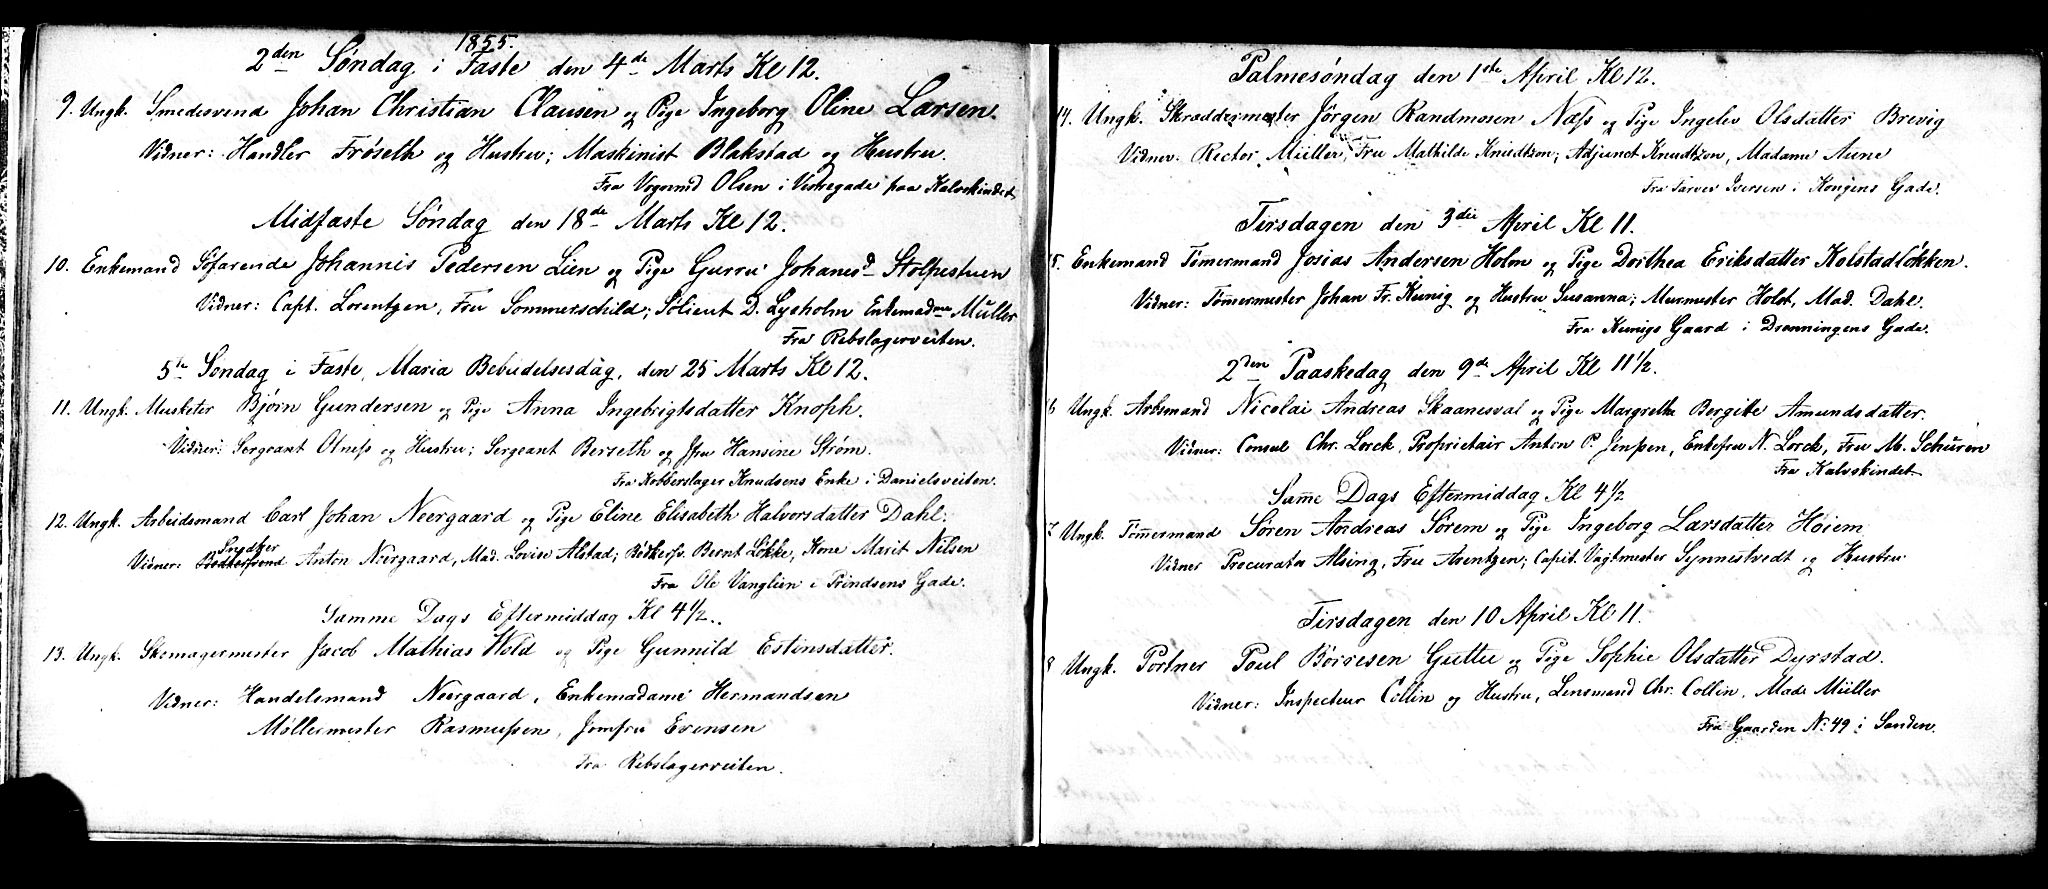 1855.
2den Søndag i Faste den 4de Marts Kl 12.
9. Ungk. Smedesvend Johan Christian Clausen og Pige Ingeborg Oline Larsen.
Vidner: Handler Frøseth og Hustru; Maskinist Blakstad og Hustru.
Fra Vognmd Olsen i Vestregade paa Kalvskindet
Midfaste Søndag den 18de Marts Kl 12.
10. Enkemand Søfarende Johannis Pedersen Lien og Pige Gurru Johanesd Stolpestuen
Vidner: Capt. Lorentzen, Fru Sommerschild; D. Lysholm Enkemadme Müller
Fra Rebslagerveiten.
5te Søndag i Faste, Maria Bebudelsesdag, den 25 Marts Kl 12.
11. Ungk. Musketer Bjørn Gundersen og Pige Anna Ingebrigtsdatter Knoph.
Vidner: Sergeant Olness og Hustru; Sergeant Berseth og Jfru Hansine Strøm.
Fra Kobberslager Knudsens Enke i Danielsveiten.
12. Ungk. Arbeidsmand Carl Johan Neergaard og Pige Eline Elisabeth Halvorsdatter Dahl.
Snedker
Vidner: Bødkersvend Anton Neergaard, Mad. Lovise Alstad; Bødkersv. Bernt Løkke, Kone Marit Nilsen
Fra Ole Vanglien i Prindsens Gade.
Samme Dags Eftermiddag Kl 4½.
13. Ungk. Skomagermester Jacob Mathias Wold og Pige Gunnild Estinsdatter.
Vidner: Handelsmand Neergaard, Enkemadame Hermandsen
Møllermester Rasmussen, Jomfru Evensen
Fra Rebslagerveiten.
Palmesøndag den 1ste April Kl 12.
14. Ungk. Skræddermester Jörgen Randmosen Næss og Pige Ingelev Olsdatter Brevig
Vidner: Rector Müller, Fru Mathilde Knudtzon; Adjunct Knudtzon, Madame Aune
Fra Farver Iversen i Kongens Gade.
Tirsdagen den 3die April Kl 11.
5. Enkemand Tømermand Josias Andersen Holm og Pige Dorthea Eriksdatter Kolstadløkken.
Vidner: Tømermester Johan Fr. Kunig og Hustru Susanna; Murmester Holst, Mad. Dahl.
Fra Kunigs Gaard i Dronningens Gade.
2den Paaskedag den 9de April Kl 11½.
6 Ungk. Arbsmand Nicolai Andreas Skaanesval og Pige Margretha Bergitte Amundsdatter.
Vidner: Consul Chr. Lorck, Proprietair Anton P. Jenssen, Enkefru N. Lorck, Fru M. Schüren
Fra Kalvskindet
Samme Dags Eftermiddag Kl 4½
7 Ungk. Tømmermand Søren Andreas Sörem og Pige Ingeborg Larsdatter Høiem
Vidner Procurator Alsing, Fru Arentzen; Capit. Vagtmester Synnestvedt og Hustru
Tirsdagen den 10 April Kl 11.
8 Ungk. Portner Poul Börresen Guttu og Pige Sophie Olsdatter Dyrstad.
Vidner: Inspecteur Collin og Hustru, Lensmand Chr. Collin, Made Müller
Fra Gaarden N: 49 i Sanden.